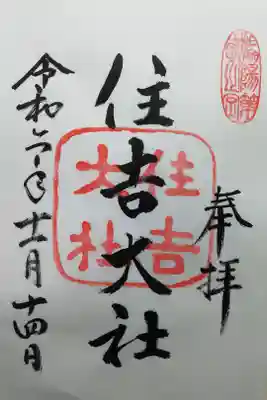 奉拝
住吉大社
住吉大社
令和六年十一月十四日